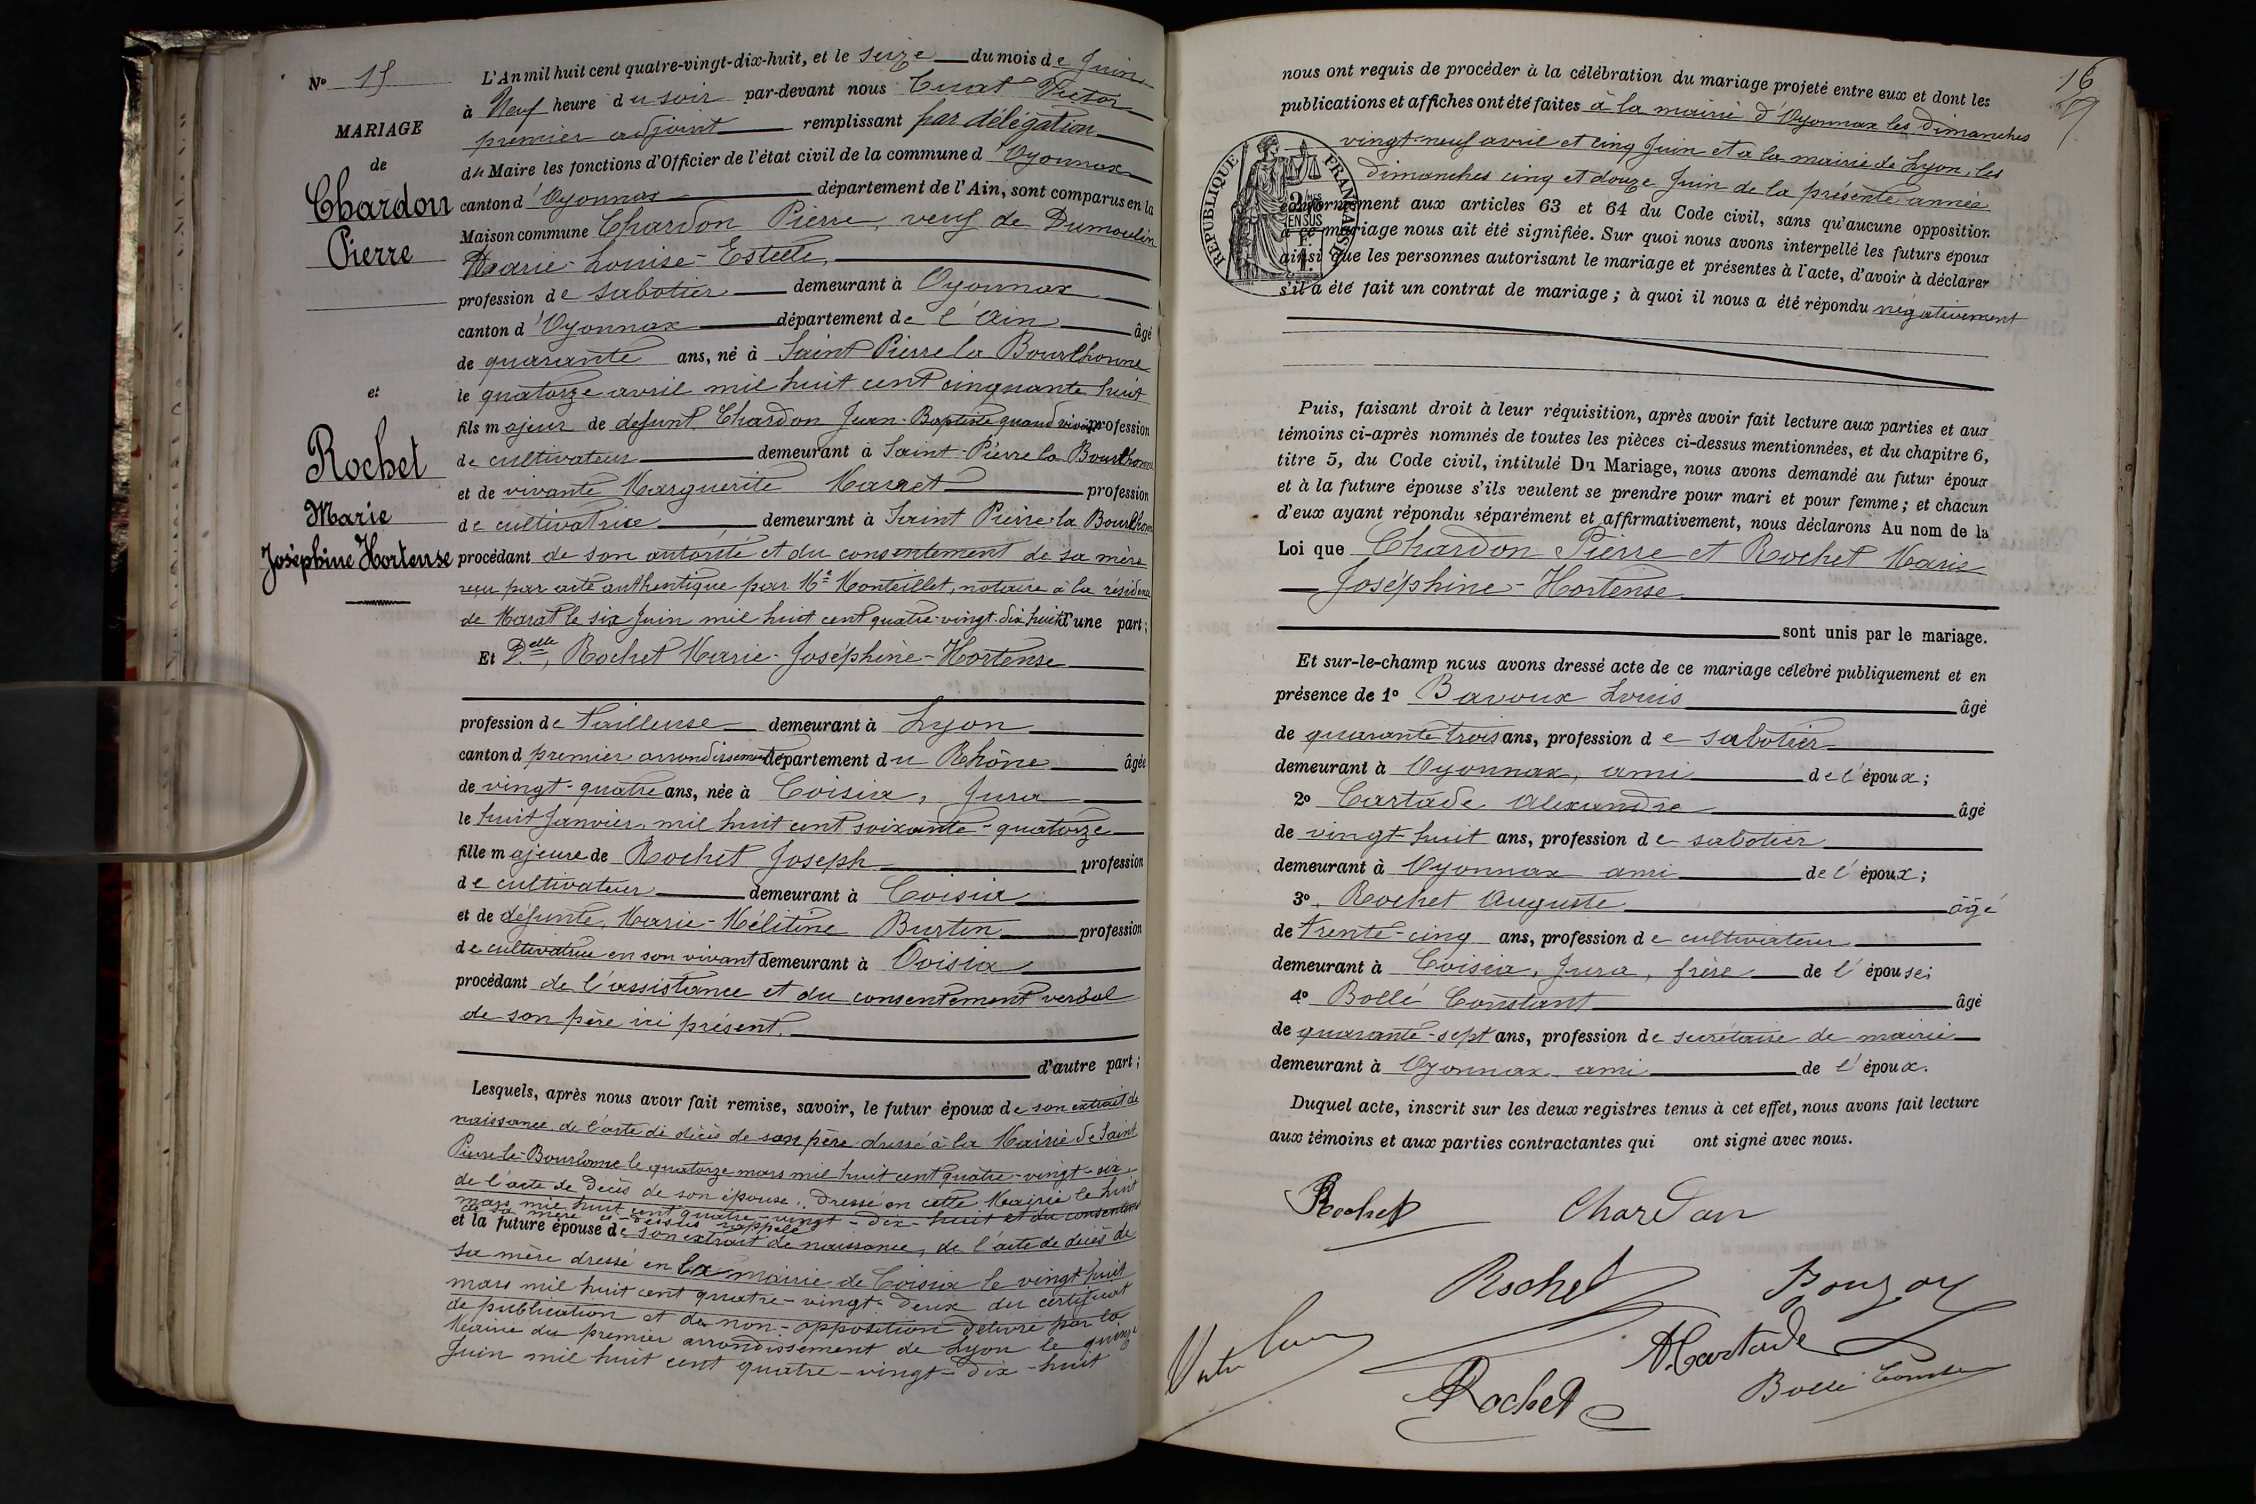 N° 15
MARIAGE
de
Chardon
Pierre
et
Rochet
Marie
Joséphine Hortense
L'An mil huit cent quatre-vingt-dix-huit, et le seize du mois de Juin
à Neuf heure du soir par-devant nous Cuat Victor
premier adjoint remplissant par délégation
du Maire les fonctions d'Officier de l'état civil de la commune d'Oyonnax
canton d'Oyonnax département de l'Ain, sont comparus en la
Maison commune Chardon Pierre, veuf de Dumoulin
Marie-Louise-Estelle,
profession de sabotier demeurant à Oyonnax
canton d'Oyonnax département de l'Ain âgé
de quarante ans, né à Saint Pierre la Bourlhonne
le quatorze avril mil huit cent cinquante huit
fils majeur de défunt Chardon Jean-Baptiste quand vivait profession
de cultivateur demeurant à Saint-Pierre la Bourlhonne
et de vivante Marguerite Marret profession
de cultivatrice demeurant à Saint Pierre la Bourlhonne
procédant de son autorité et du consentement de sa mère
reçu par acte authentique par Me Monteillet, notaire à la résidence
de Marat le six Juin mil huit cent quatre-vingt-dix huit d'une part;
Et Delle Rochet Marie-Joséphine-Hortense
profession de Tailleuse demeurant à Lyon
canton d premier arrondissement département du Rhône âgée
de vingt-quatre ans, née à Coisia, Jura
le huit Janvier, mil huit cent soixante-quatorze
fille majeure de Rochet Joseph profession
de cultivateur demeurant à Coisia
et de défunte, Marie-Mélitine Burtin profession
de cultivatrice en son vivant demeurant à Coisia
procédant de l'assistance et du consentement verbal
de son père ici présent.
d'autre part;
Lesquels, après nous avoir fait remise, savoir, le futur époux de son extrait de
naissance, de l'acte de décès de son père dressé à la Mairie de Saint
Pierre la-Bourlonne le quatorze mars mil huit cent quatre-vingt-six,
de l'acte de décès de son épouse, dressé en cette Mairie le huit
mars mil huit cent quatre-vingt-dix-huit et du consentement
de sa mère ci-dessus rappelé
et la future épouse de son extrait de naissance, de l'acte de décès de
sa mère dressé en la mairie de Coisia le vingt huit
mars mil huit cent quatre-vingt-deux du certificat
de publication et de non-opposition délivré par la
Mairie du premier arrondissement de Lyon le quinze
Juin mil huit cent quatre-vingt-dix-huit
16
nous ont requis de procéder à la célébration du mariage projeté entre eux et dont les
publications et affiches ont été faites à la mairie d'Oyonnax les dimanches
vingt-neuf avril et cinq Juin et à la mairie de Lyon, les
dimanches cinq et douze Juin de la présente année
conformément aux articles 63 et 64 du Code civil, sans qu'aucune opposition
à ce mariage nous ait été signifiée. Sur quoi nous avons interpellé les futurs époux
ainsi que les personnes autorisant le mariage et présentes à l'acte, d'avoir à déclarer
s'il a été fait un contrat de mariage; à quoi il nous a été répondu négativement
RÉPUBLIQUE FRANÇAISE
EN SUS
Puis, faisant droit à leur réquisition, après avoir fait lecture aux parties et aux
témoins ci-après nommés de toutes les pièces ci-dessus mentionnées, et du chapitre 6,
titre 5, du Code civil, intitulé Du Mariage, nous avons demandé au futur époux
et à la future épouse s'ils veulent se prendre pour mari et pour femme; et chacun
d'eux ayant répondu séparément et affirmativement, nous déclarons Au nom de la
Loi que Chardon Pierre et Rochet Marie
Joséphine-Hortense
sont unis par le mariage.
Et sur-le-champ nous avons dressé acte de ce mariage célébré publiquement et en
présence de 1° Bavoux Louis âgé
de quarante trois ans, profession de sabotier
demeurant à Oyonnax, ami de l'époux;
2° Cartade Alexandre âgé
de vingt-huit ans, profession de sabotier
demeurant à Oyonnax ami de l'époux;
3° Rochet Auguste âgé
de trente-cinq ans, profession de cultivateur
demeurant à Coisia, Jura, frère de l'épouse;
4° Bollé Constant âgé
de quarante-sept ans, profession de secrétaire de mairie
demeurant à Oyonnax ami de l'époux.
Duquel acte, inscrit sur les deux registres tenus à cet effet, nous avons fait lecture
aux témoins et aux parties contractantes qui ont signé avec nous.
Rochet Chardan
Rochet
A Cartade
Rochet
Bollé Constant